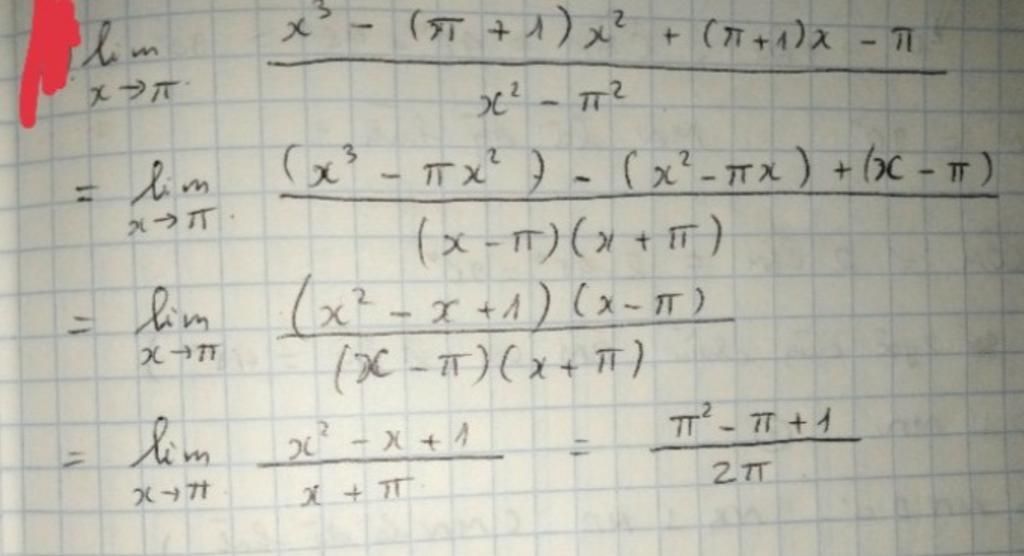 lim x→π (x³ - (π + 1)x² + (π+1)x - π) / (x² - π²)
= lim x→π ((x³ - πx²) - (x² - πx) + (x - π)) / ((x - π)(x + π))
= lim x→π ((x² - x + 1)(x - π)) / ((x - π)(x + π))
= lim x→π (x² - x + 1) / (x + π) = (π² - π + 1) / 2π